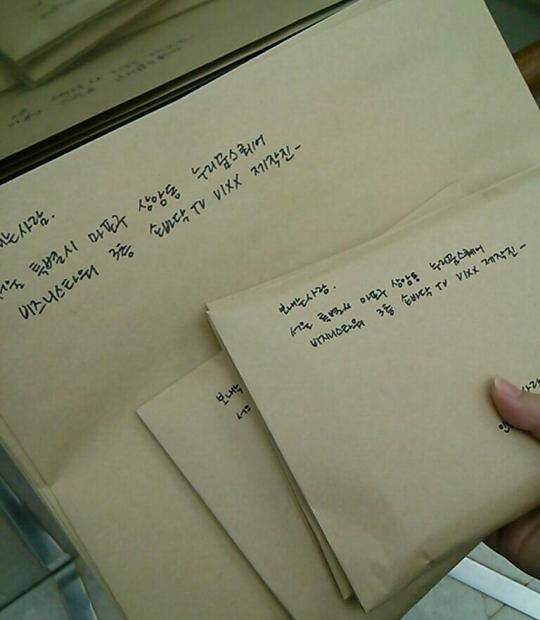 는사람.
서울 특별시 마포구 상암동 누리꿈스퀘어
비즈니스타워 3층 손바닥TV VIXX 제작진-
보내는사람.
서울 특별시 마포구 상암동 누리꿈스퀘어
비지니스타워 3층 손바닥TV VIXX 제작진-
보내는
서울